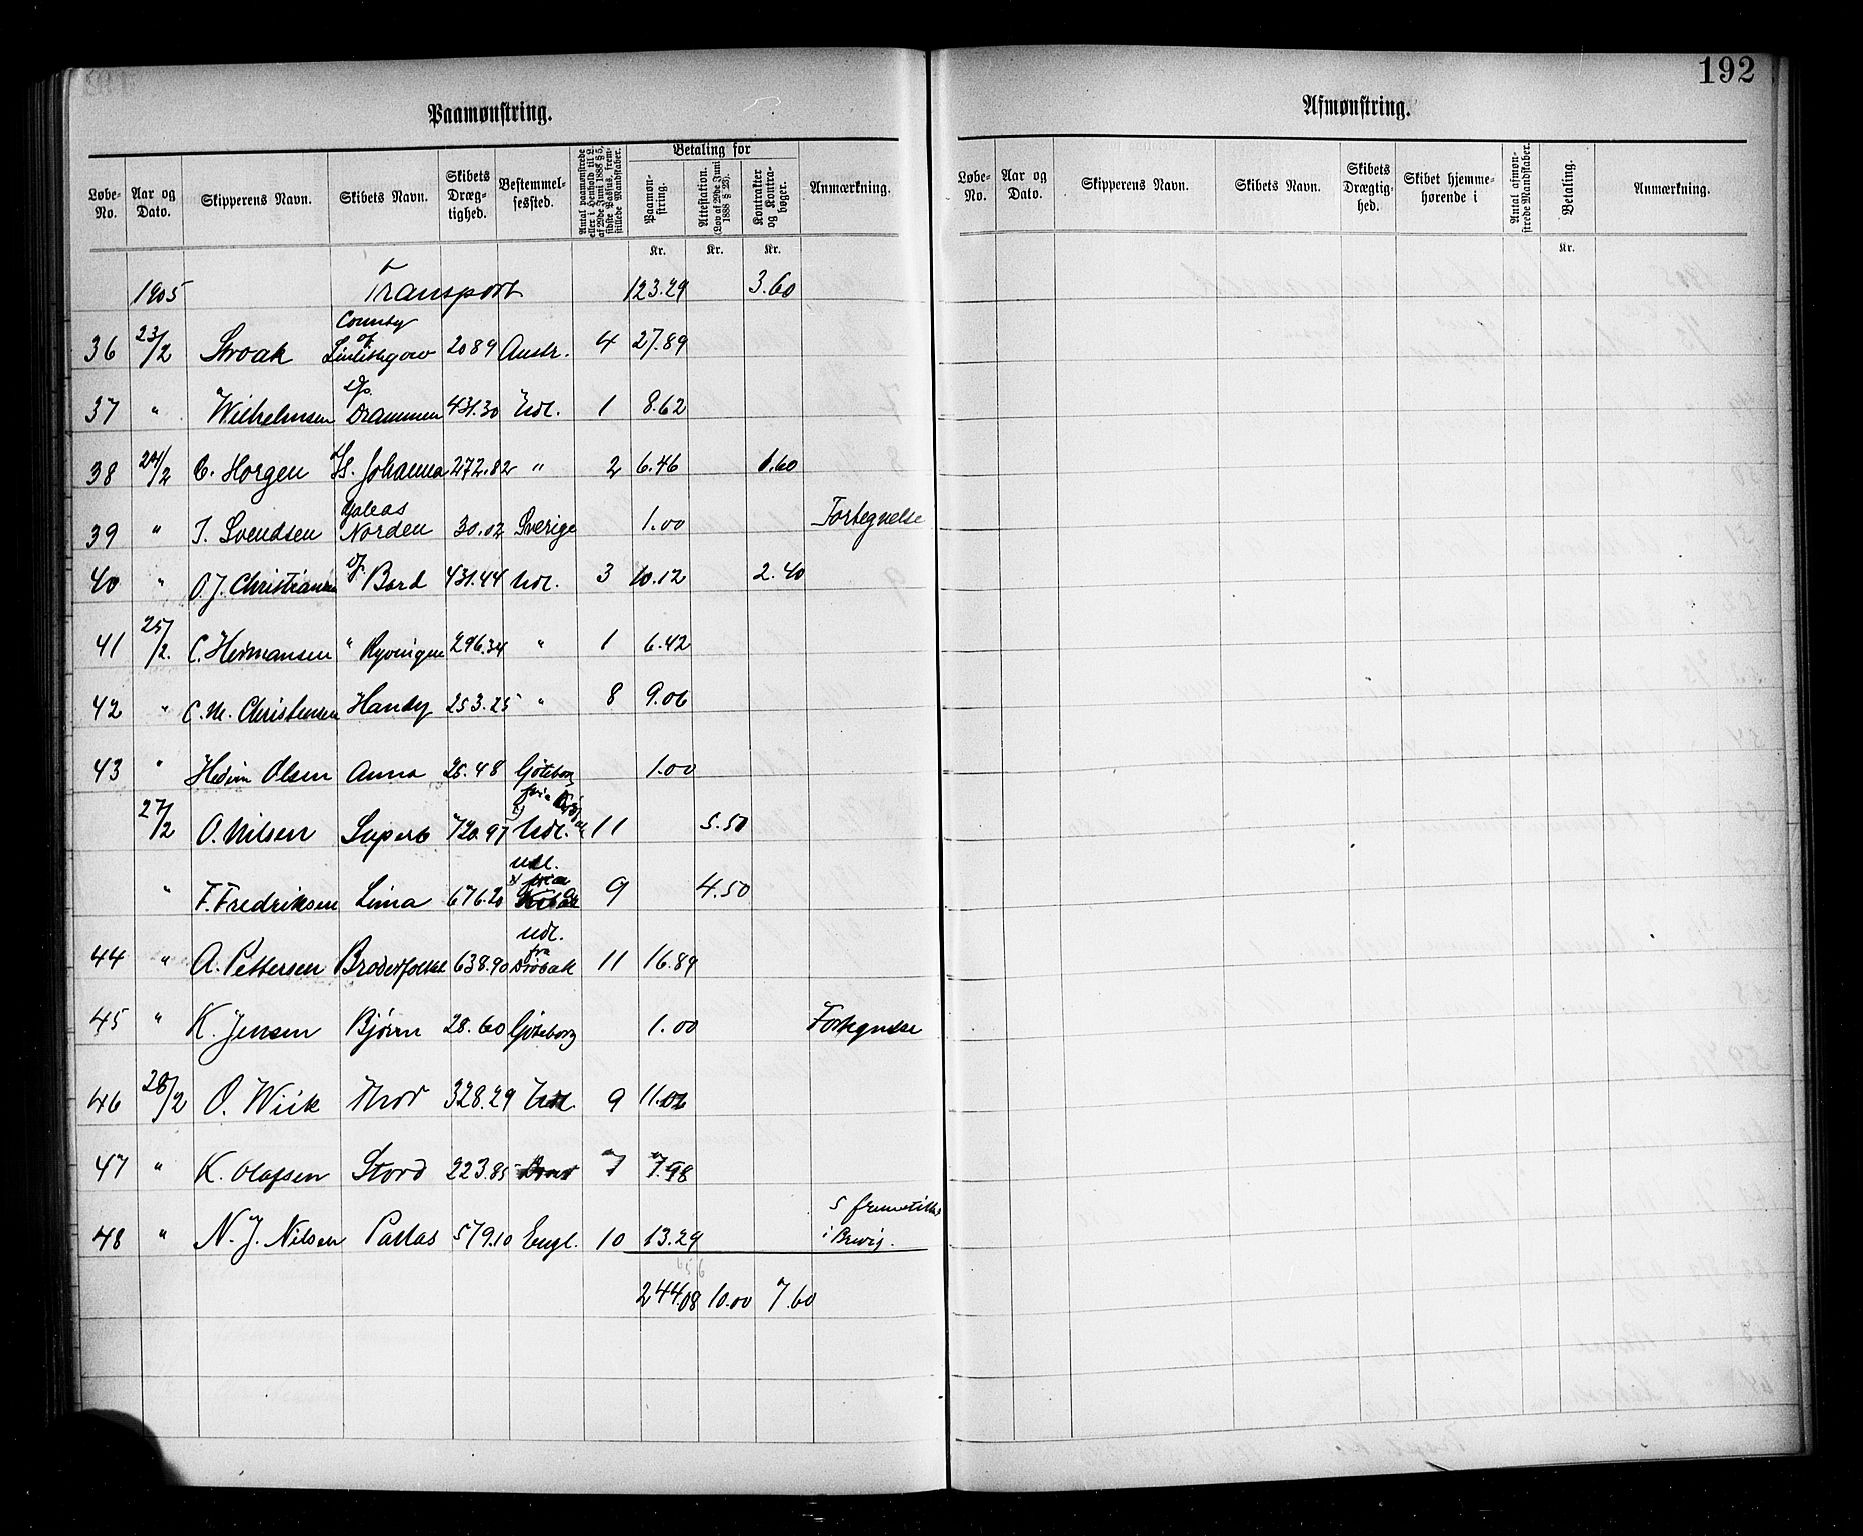 192
Paamønstring.
Afmønstring.
Løbe-No. Aar og Dato. Skipperens Navn. Skibets Navn. Skibets Dræg-tighed. Bestemmel-sessted. Antal paamønstrede eller i Henhold til L. af 29de Juni 1888 § 5, sidste Passus, frem-stillede Mandskaber. Betaling for Paamøn-string. Attestation. (Lov af 29de Juni 1888 § 23). Kontrakter og Kontra-bøger. Anmærkning.
Kr. Kr. Kr.
Løbe-No. Aar og Dato. Skipperens Navn. Skibets Navn. Skibets Drægtig-hed. Skibet hjemme-hørende i Antal afmøn-strede Mandskaber. Betaling. Anmærkning.
Kr.
1905 Transport 123.29 3.60
36 23/2 Stroak County of Linlithgow 2089 Austr. 4 27.89
37 " Wilhelmsen Drammen 431.30 Udl. 1 8.62
38 24/2 C. Horgen Johanna 272.82 " 2 6.46 1.60
39 " T. Svendsen Galeas Norden 30.02 Sverige 1.00 Fortegnelse
40 " O.J. Christiansen Bard 431.44 Udl. 3 10.12 2.40
41 25/2. C. Hermansen " Ryvingen 296.34 " 1 6.42
42 " C. M. Christensen Handy 253.25 " 8 9.06
43 " Olsen Anna 26.48 Gøteborg 1.00
27/2 O. Nilsen Superb 720.97 Udl. 11 5.50
" F. Fredriksen Lima 676.20 Udl. 9 4.50
44 " A. Pettersen Broderfolket 638.90 Udl. fra Drøbak 11 16.89
45 " K. Jensen Bjørn 28.60 Gøteborg 1.00 Fortegnelse
46 28/2 O. Wiik Thor 328.29 Udl. 9 11.06
47 " K. Olafsen Stord 223.85 7 7.98
48 " N. J. Nilsen Pallas 579.10 Engl. 10 13.29 5 fremstillet i Brevig.
244.08 10.00 7.60